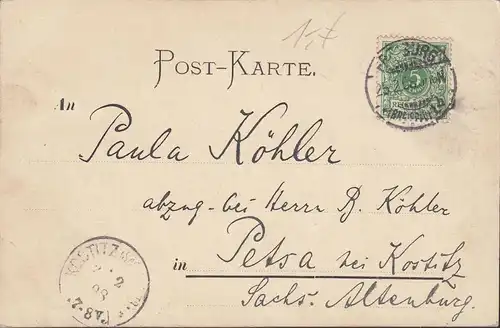 1,-
POST-KARTE.
5
An
Paula Köhler
abzug. bei Herrn B. Köhler
in Petsa bei Kostitz
Sachs. Altenburg.
KOSTITZ
2
98
7-8